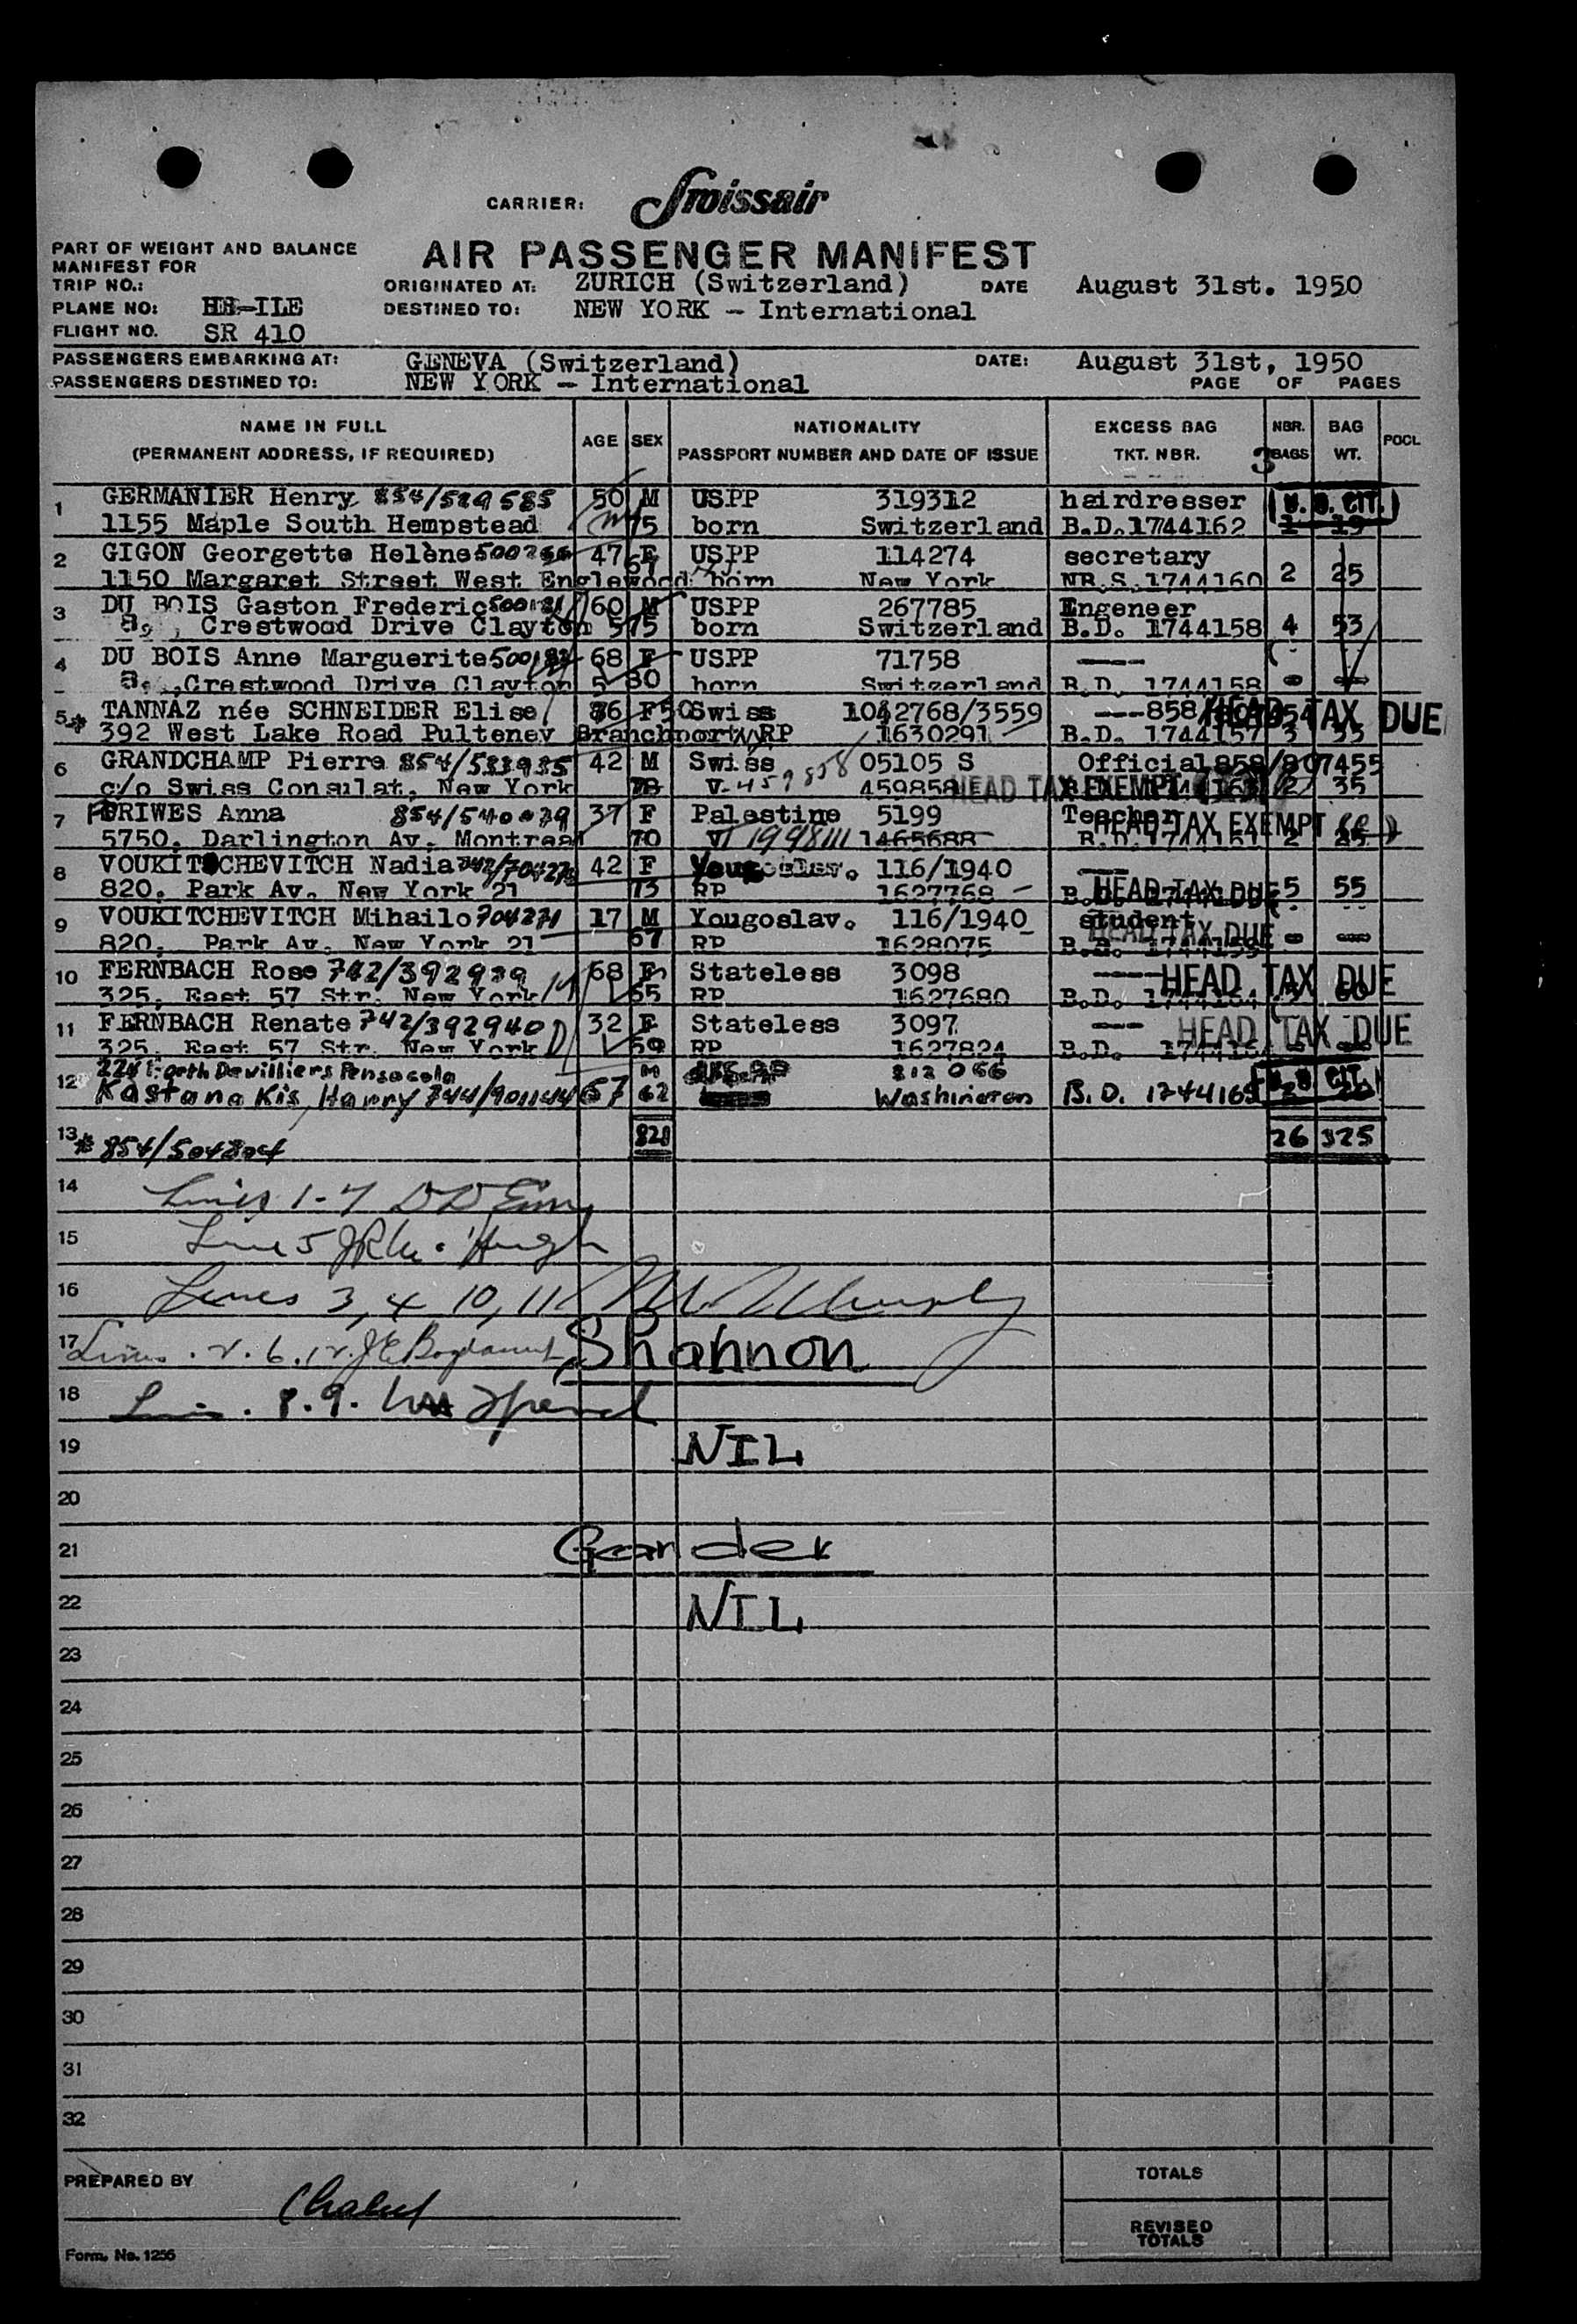 CARRIER: Swissair
PART OF WEIGHT AND BALANCE
MANIFEST FOR
AIR PASSENGER MANIFEST
TRIP NO.: ORIGINATED AT: ZURICH (Switzerland) DATE August 31st. 1950
PLANE NO: HB-ILE DESTINED TO: NEW YORK - International
FLIGHT NO. SR 410
PASSENGERS EMBARKING AT: GENEVA (Switzerland) DATE: August 31st, 1950
PASSENGERS DESTINED TO: NEW YORK - International PAGE OF PAGES
NAME IN FULL AGE SEX NATIONALITY EXCESS BAG NBR. BAG POCL
(PERMANENT ADDRESS, IF REQUIRED) PASSPORT NUMBER AND DATE OF ISSUE TKT. NBR. 3 BAGS WT.
1 GERMANIER Henry 854/529585 50 M USPP 319312 hairdresser U.S. CIT.
1155 Maple South Hempstead 75 born Switzerland B.D.1744162 1 19
2 GIGON Georgette Helène 500266 47 F USPP 114274 secretary
1150 Margaret Street West Englewood 67 born New York NR.S.1744160 2 25
3 DU BOIS Gaston Frederic 500181 60 M USPP 267785 Engeneer
Crestwood Drive Clayton 5 75 born Switzerland B.D. 1744158 4 53
4 DU BOIS Anne Marguerite 500182 68 F USPP 71758 ----
Crestwood Drive Clayton 5 80 born Switzerland B.D. 1744158 - -
5 * TANNAZ née SCHNEIDER Elise 36 F 50 Swiss 1042768/3559 ---858 HEAD TAX DUE
392 West Lake Road Pulteney Branchport RP 1630291 B.D. 1744157 3 35
6 GRANDCHAMP Pierre 854/533935 42 M Swiss 05105 S Official 858/807455
c/o Swiss Consulat, New York 78 V-459858 459858 HEAD TAX EXEMPT 2 35
7 DRIWES Anna 854/540079 37 F Palestine 5199 Teacher HEAD TAX EXEMPT
5750, Darlington Av. Montreal 70 1465688 B.D.1744161 2 25
8 VOUKITCHEVITCH Nadia 742/704270 42 F Yougoslav. 116/1940 ----
820, Park Av. New York 21 73 RP 1627768 HEAD TAX DUE 5 55
9 VOUKITCHEVITCH Mihailo 704271 17 M Yougoslav. 116/1940 student
820, Park Av. New York 21 67 RP 1628075 HEAD TAX DUE - -
10 FERNBACH Rose 742/392939 68 F Stateless 3098 ---- HEAD TAX DUE
325, East 57 Str. New York 65 RP 1627680 B.D. 1744164 5 60
11 FERNBACH Renate 742/392940 32 F Stateless 3097 ---- HEAD TAX DUE
325, East 57 Str. New York 59 RP 1627824 B.D. 1744164 - -
224 North Devilliers Pensacola M 812066 U.S. CIT.
12 Kastana Kis, Harry 744/901144 57 62 Washington B.D. 1744165
13 * 854/504804 821 26 325
14 Lines 1-7
15 Line 5
16 Lines 3, 4 10, 11
17 Lines . 2. 6. 12. Shannon
18 Lines . 8. 9.
19 NIL
20
21 Gander
22 NIL
23
24
25
26
27
28
29
30
31
32
PREPARED BY TOTALS
REVISED
TOTALS
Form. No. 1256